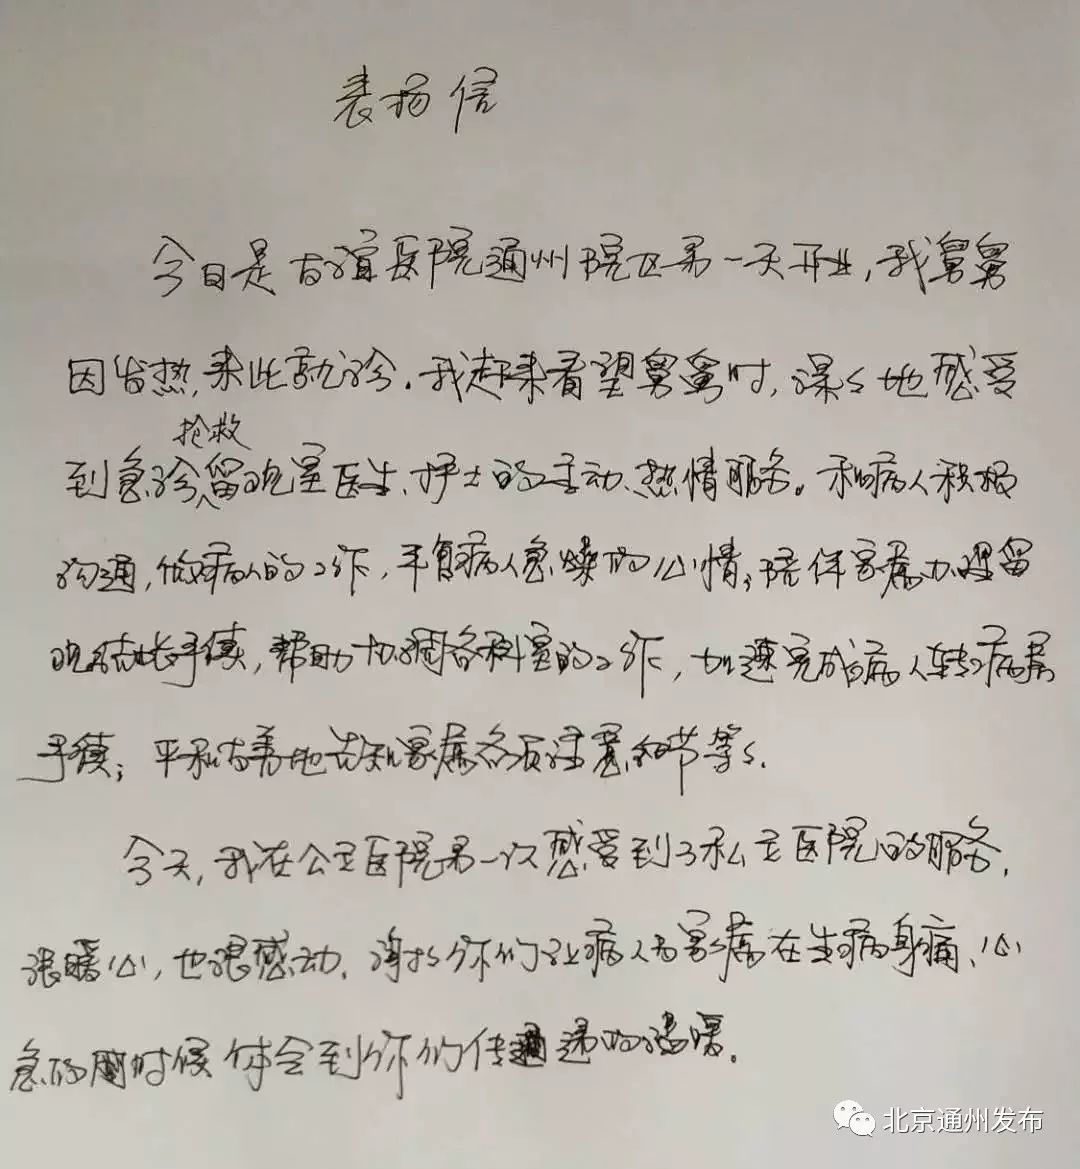 表扬信
今日是友谊医院通州院区第一天开业,我舅舅
因发热,来此就诊.我赶来看望舅舅时,深々地感受
抢救
到急诊留观室医生、护士的主动、热情服务。和病人积极
沟通,做病人的工作,平复病人急燥的心情;陪伴家属办理留
观结帐手续,帮助协调各科室的工作,加速完成病人转病房
手续;平和友善地告知家属各项注意细节等々.
今天,我在公立医院第一次感受到了私立医院的服务,
很暖心,也很感动.谢谢你们让病人和家属在生病身痛、心
急的时候体会到你们传递的温暖。
北京通州发布